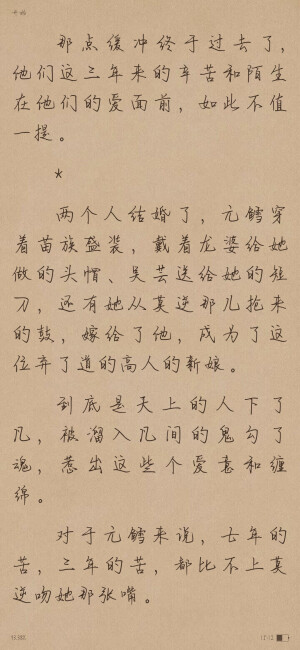 那点缓冲终于过去了，
他们这三年来的辛苦和陌生
在他们的爱面前，如此不值
一提。
*
两个人结婚了，元鳕穿
着苗族盛装，戴着龙婆给她
做的头帽、吴芸送给她的短
刀，还有她从莫逆那儿抢来
的鼓，嫁给了他，成为了这
位弃了道的高人的新娘。
到底是天上的人下了
凡，被溜入凡间的鬼勾了
魂，惹出这些个爱意和缠
绵。
对于元鳕来说，七年的
苦，三年的苦，都比不上莫
逆吻她那张嘴。